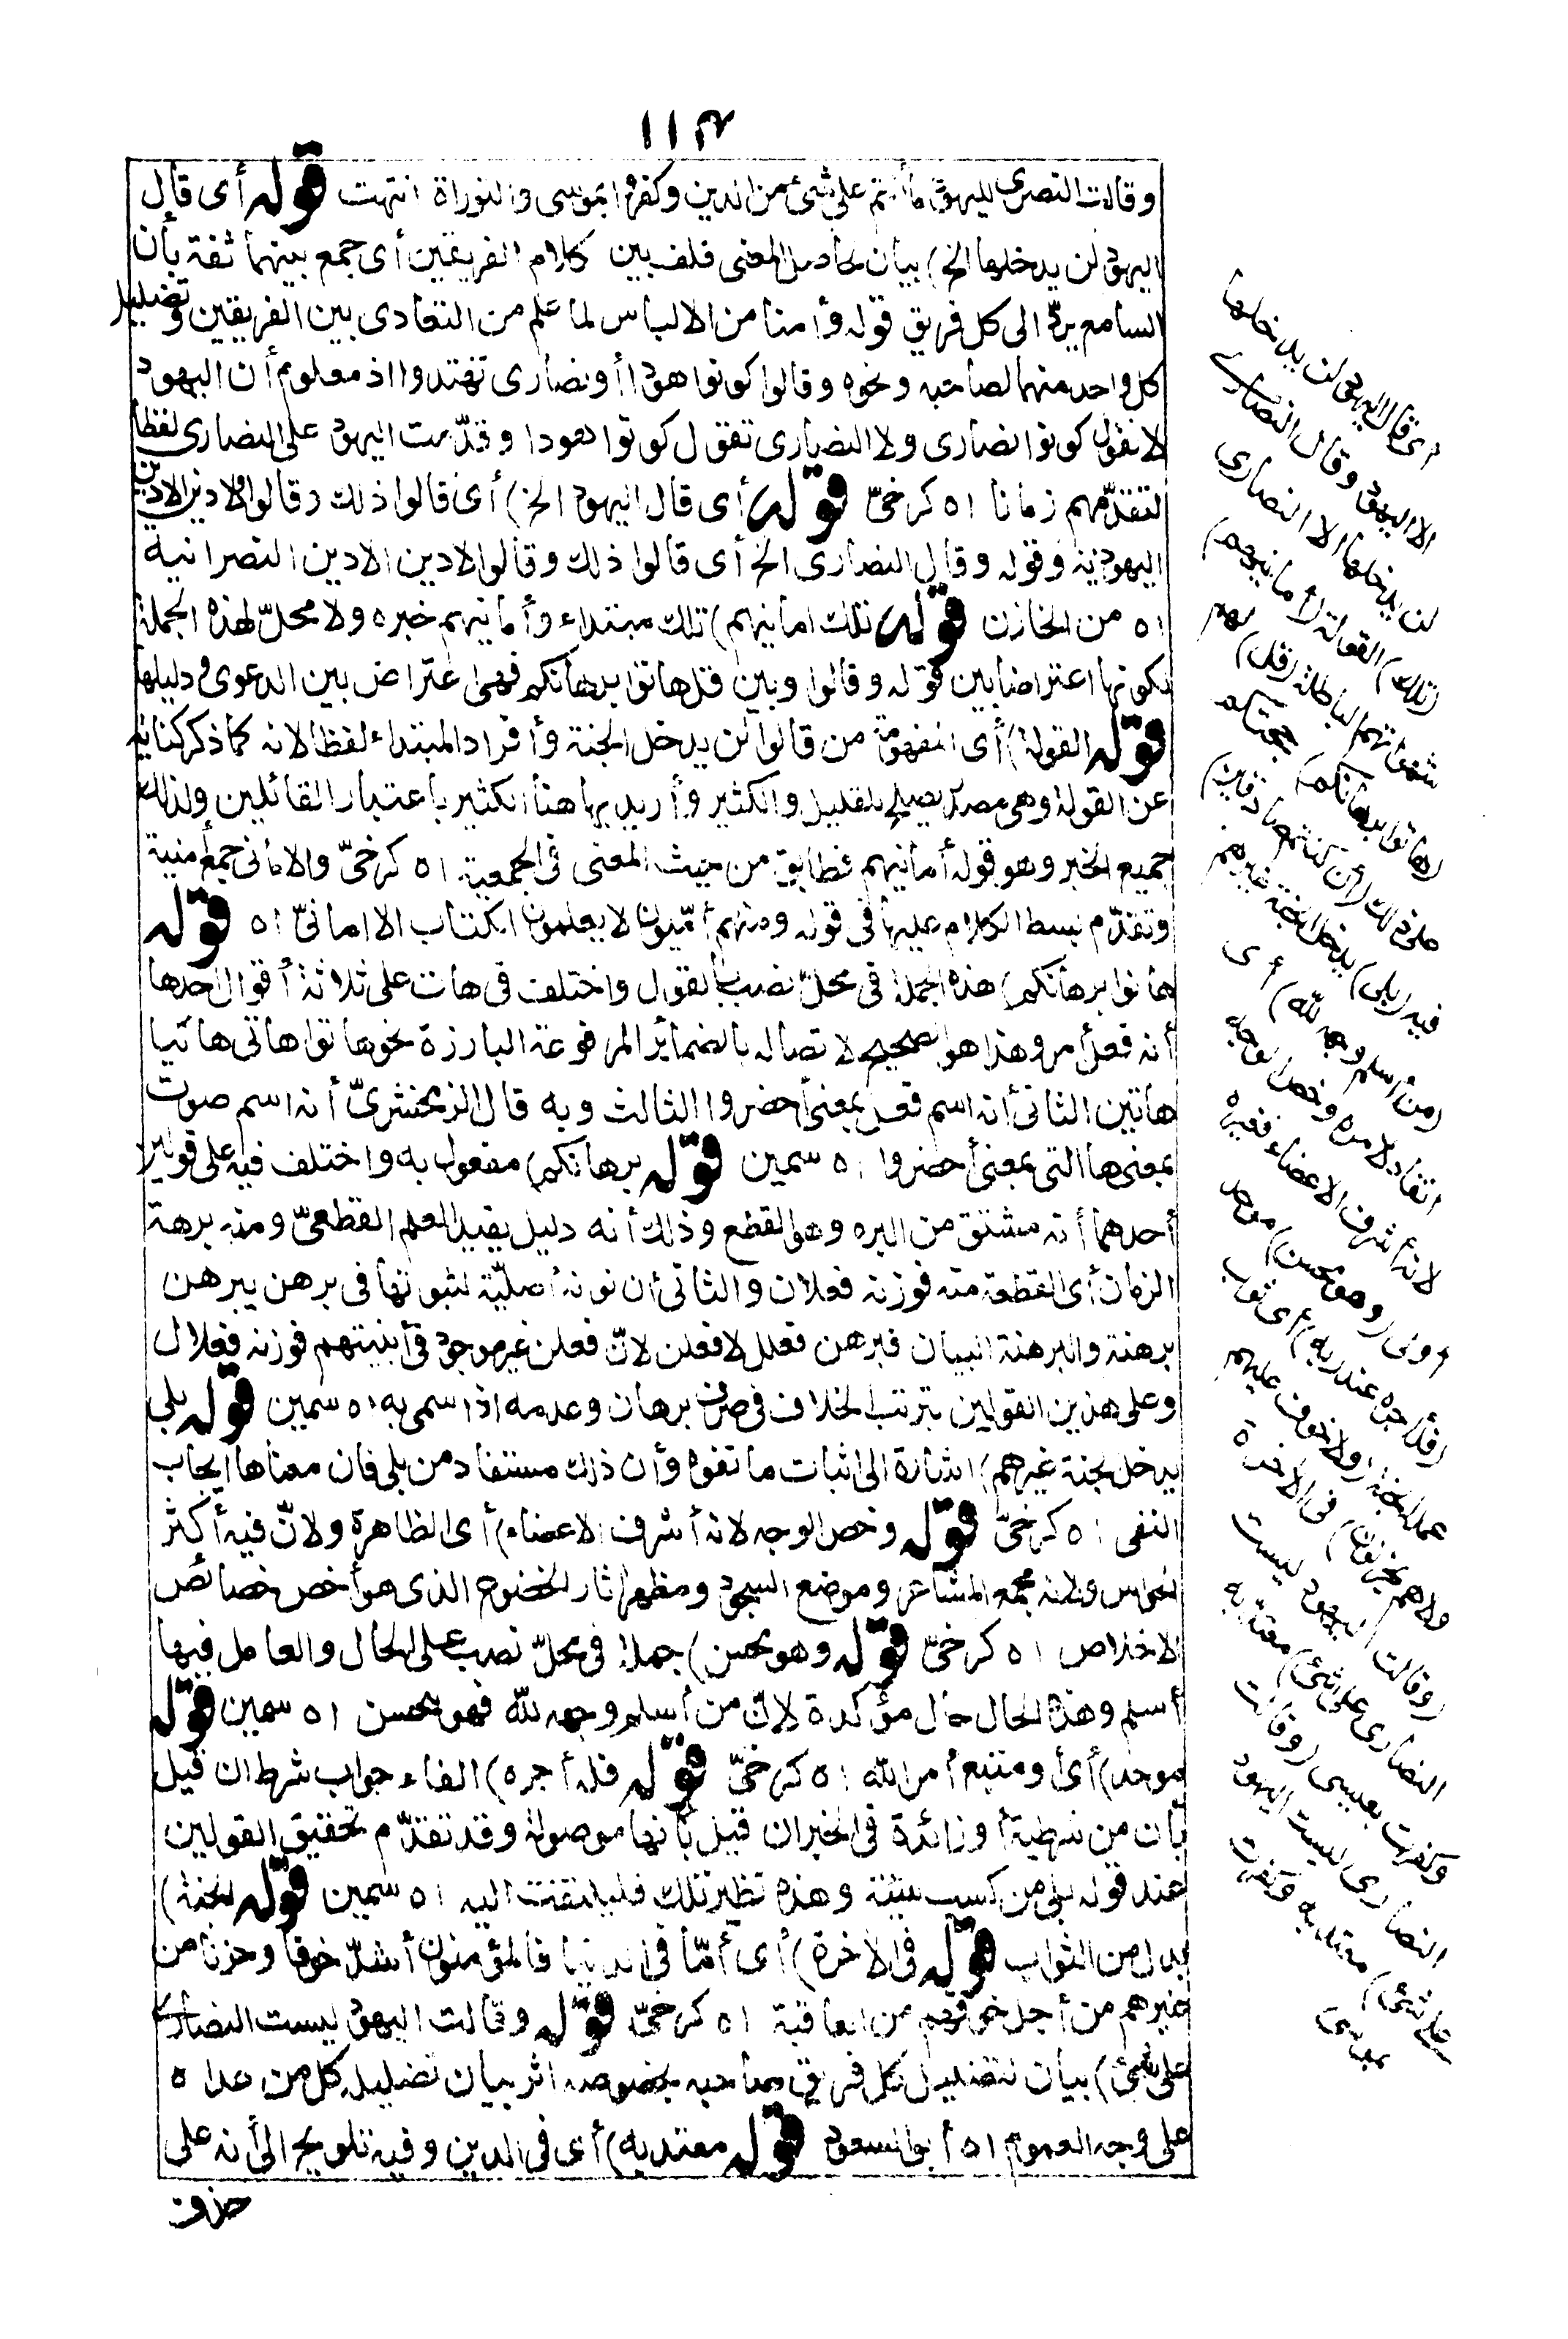 ١١٣
وقالت النصرى لليهود ما أنتم على شئ من الدين وكفروا بموسى والتوراة انتهت قوله أى قال
اليهود لن يدخلها الخ) بيان لحاصل المعنى فلف بين كلام الفريقين أى جمع بينهما ثقة بأن
السامع يردّ الى كل فريق قوله وأمنا من الالباس لما علم من التعادى بين الفريقين وتضليل
كل واحد منهما لصاحبه ونحوه وقالوا كونوا هودا أو نصارى تهتدوا اذ معلوم أن اليهود
لا تقول كونوا نصارى ولا النصارى تقول كونوا هودا وقدّمت اليهود على النصارى لفظا
لتقدّمهم زمانا اه كرخىّ قوله أى قال اليهود الخ) أى قالوا ذلك وقالوا لا دين الا دين
اليهودية وقوله وقال النصارى الخ أى قالوا ذلك وقالوا لا دين الا دين النصرانية
اه من الخازن قوله تلك امانيهم) تلك مبتداء وأمانيهم خبره ولا محلّ لهذه الجملة
لكونها اعتراضا بين قوله وقالوا وبين قل هاتوا برهانكم فهى اعتراض بين الدعوى ودليلها
قوله القولة) أى المفهومة من قالوا لن يدخل الجنة وأفراد المبتداء لفظا لانه كما ذكر كناية
عن القولة وهى مصدر يصلح للقليل والكثير وأريد بها هنا الكثير باعتبار القائلين ولذلك
جمع الخبر وهو قوله أمانيهم فطابق من حيث المعنى فى الجمعية اه كرخىّ والامانى جمع أمنية
وتقدّم بسط الكلام عليها فى قوله ومنهم أمّيون لا يعلمون الكتاب الا امانىّ اه قوله
هاتوا برهانكم) هذه الجملة فى محلّ نصب بالقول واختلف فى هات على ثلاثة أقوال احدها
أنه فعل أمر وهذا هو الصحيح لاتصاله بالضمائر المرفوعة البارزة نحو هاتوا هاتى هاتيا
هاتين الثانى أنه اسم فعل بمعنى أحضروا الثالث وبه قال الزمخشرىّ أنه اسم صوت
بمعنى ها التى بمعنى أحضروا اه سمين قوله برهانكم) مفعول به واختلف فيه على قولين
أحدهما أنه مشتق من البره وهو القطع وذلك أنه دليل يفيد العلم القطعىّ ومنه برهة
الزمان أى القطعة منه فوزنه فعلان والثانى أن نونه أصليّة لثبوتها فى برهن يبرهن
برهنة والبرهنة البيان فبرهن فعلل لا فعلن لانّ فعلن غير موجود فى أبنيتهم فوزنه فعلال
وعلى هذين القولين يترتب الخلاف فى صرف برهان وعدمه اذا سمى به اه سمين قوله بلى
يدخل الجنة غيرهم) اشارة الى اثبات ما نفوه وأن ذلك مستفاد من بلى فان معناها ايجاب
النفى اه كرخىّ قوله وخص الوجه لانه أشرف الاعضاء) أى الظاهرة ولانّ فيه أكثر
الحواس ولانه مجمع المشاعر وموضع السجود ومظهر اثار الخضوع الذى هو أخص خصائص
الاخلاص اه كرخىّ قوله وهو محسن) جملة فى محلّ نصب على الحال والعامل فيها
أسلم وهذه الحال حال مؤكدة لانّ من أسلم وجهه لله فهو محسن اه سمين قوله
موحد) أى ومتبع أمر الله اه كرخىّ قوله فله أجره) الفاء جواب شرط ان قيل
بأن من شرطية أو زائدة فى الخبر ان قيل بأنها موصولة وقد تقدّم تحقيق القولين
عند قوله بلى من كسب سيئة وهذه نظير تلك فليلتفت اليه اه سمين قوله الجنة)
بدل من الثواب قوله فى الاخرة) أى أمّا فى الدنيا فالمؤمنون أشدّ خوفا وحزنا من
غيرهم من أجل خوفهم من العاقبة اه كرخىّ قوله وقالت اليهود ليست النصارى
على شئ) بيان لتضليل كل فريق صاحبه بخصوصه اثر بيان تضليله كل من عداه
على وجه العموم اه أبو السعود قوله معتد به) أى فى الدين وفيه تلويح الى أنه على
حذف
أى قال اليهود لن يدخلها
الا اليهود وقال النصارى
لن يدخلها الا النصارى
(تلك) القولة (أمانيهم)
شهواتهم الباطلة (قل) لهم
(هاتوا برهانكم) حجتكم
على ذلك (ان كنتم صادقين)
فيه (بلى) يدخل الجنة غيرهم
(من اسلم وجهه لله) أى
انقاد لامره وخص الوجه
لانه أشرف الاعضاء فغيره
أولى (وهو محسن) موحد
(فله أجره عند ربه) أى ثواب
عمله الجنة (ولا خوف عليهم
ولا هم يحزنون) فى الاخرة
(وقالت اليهود ليست
النصارى على شئ) معتد به
وكفرت بعيسى (وقالت
النصارى ليست اليهود
على شئ) معتد به وكفرت
بموسى